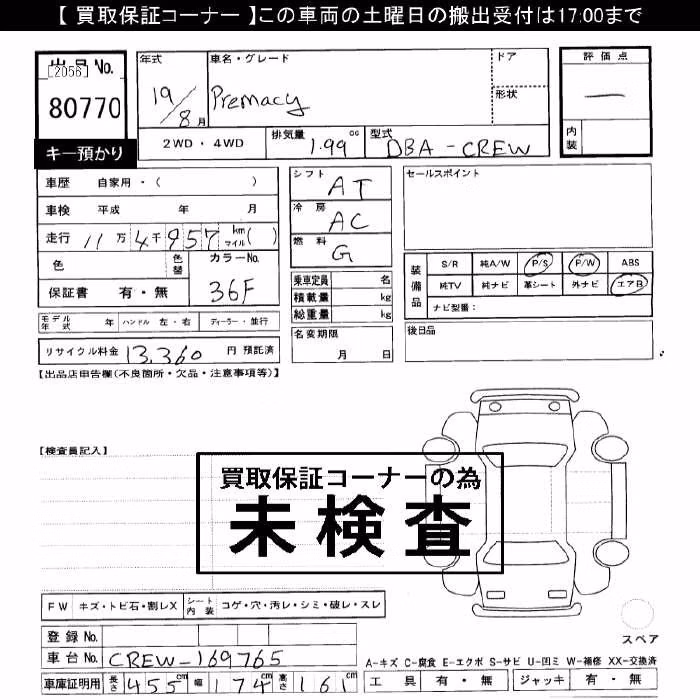 【 買取保証コーナー 】この車両の土曜日の搬出受付は17:00まで
出品 No.
[2056]
80770
キー預かり
年式
19/8月
車名・グレード
Premacy
ドア
形状
評価点
—
内装
2WD・4WD
排気量 1.99 cc
型式 DBA-CREW
車歴 自家用・( )
車検 平成 年 月
走行 11万4千957 km マイル( )
色
色替
カラーNo.
36F
保証書 有・無
シフト AT
冷房 AC
燃料 G
乗車定員 名
積載量 kg
総重量 kg
セールスポイント
装備品
S/R 純A/W P/S P/W ABS
純TV 純ナビ 革シート 外ナビ エアB
ナビ型番:
モデル年式 年 ハンドル 左・右 ディーラー・並行
リサイクル料金 13,360 円 預託済
名変期限
月 日
後日品
【出品店申告欄(不良箇所・欠品・注意事項等)】
【検査員記入】
買取保証コーナーの為
未検査
FW キズ・トビ石・割レX シート内装 コゲ・穴・汚レ・シミ・破レ・スレ
スペア
登録 No.
車台 No. CREW-169765
車庫証明用 長さ 455cm 幅 174cm 高さ 161cm
A-キズ C-腐食 E-エクボ S-サビ U-凹ミ W-補修 XX-交換済
工具 有・無 ジャッキ 有・無